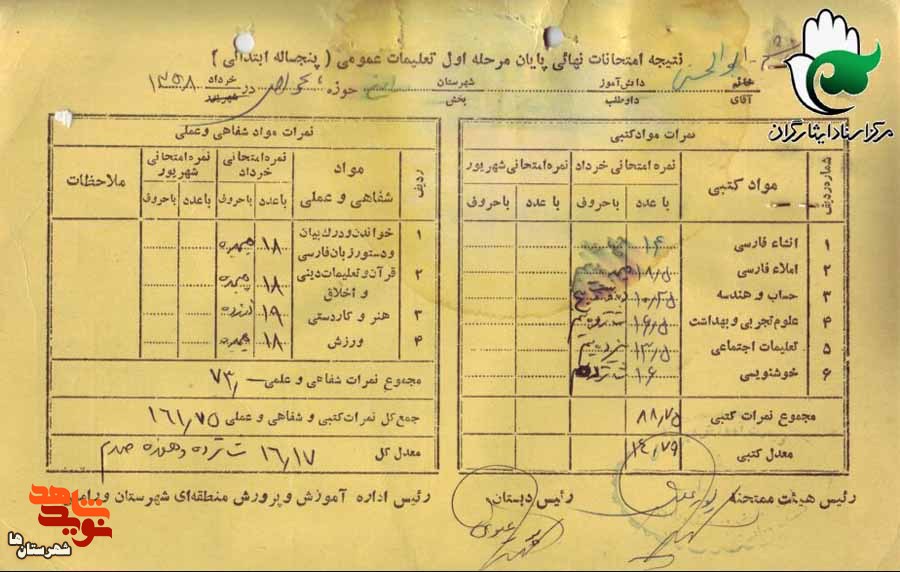 نتیجه امتحانات نهائی پایان مرحله اول تعلیمات عمومی ( پنجساله ابتدائی )
خانم آقای ابوالحسن دانش‌آموز داوطلب شهرستان بخش حوزه در خرداد شهریور ۱۳۵۸
مرکز اسناد ایثارگران
نمرات مواد کتبی
شماره ردیف مواد کتبی نمره امتحانی خرداد نمره امتحانی شهریور
با عدد با حروف با عدد با حروف
۱ انشاء فارسی ۱۴
۲ املاء فارسی ۱۸/۵
۳ حساب و هندسه ۱۰/۲۵
۴ علوم تجربی و بهداشت ۱۶/۵
۵ تعلیمات اجتماعی ۱۳/۵
۶ خوشنویسی ۱۶ شانزده
مجموع نمرات کتبی ۸۸/۷۵
معدل کتبی ۱۴/۷۹
نمرات مواد شفاهی و عملی
ردیف مواد شفاهی و عملی نمره امتحانی خرداد نمره امتحانی شهریور ملاحظات
با عدد با حروف با عدد با حروف
۱ خواندن و درک بیان و دستور زبان فارسی ۱۸ هیجده
۲ قرآن و تعلیمات دینی و اخلاق ۱۸ هیجده
۳ هنر و کاردستی ۱۹ نوزده
۴ ورزش ۱۸ هیجده
مجموع نمرات شفاهی و علمی ۷۳/
جمع کل نمرات کتبی و شفاهی و عملی ۱۶۱/۷۵
معدل کل ۱۶/۱۷ شانزده و هفده صدم
رئیس هیئت ممتحنه
رئیس دبستان
رئیس اداره آموزش و پرورش منطقه‌ای شهرستان ورامین
نوید شاهد
شهرستان‌ها